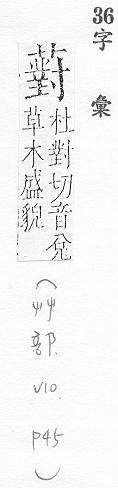 36字彙
薱
杜對切音兌
草木盛貌
(艸部. V10. P45)